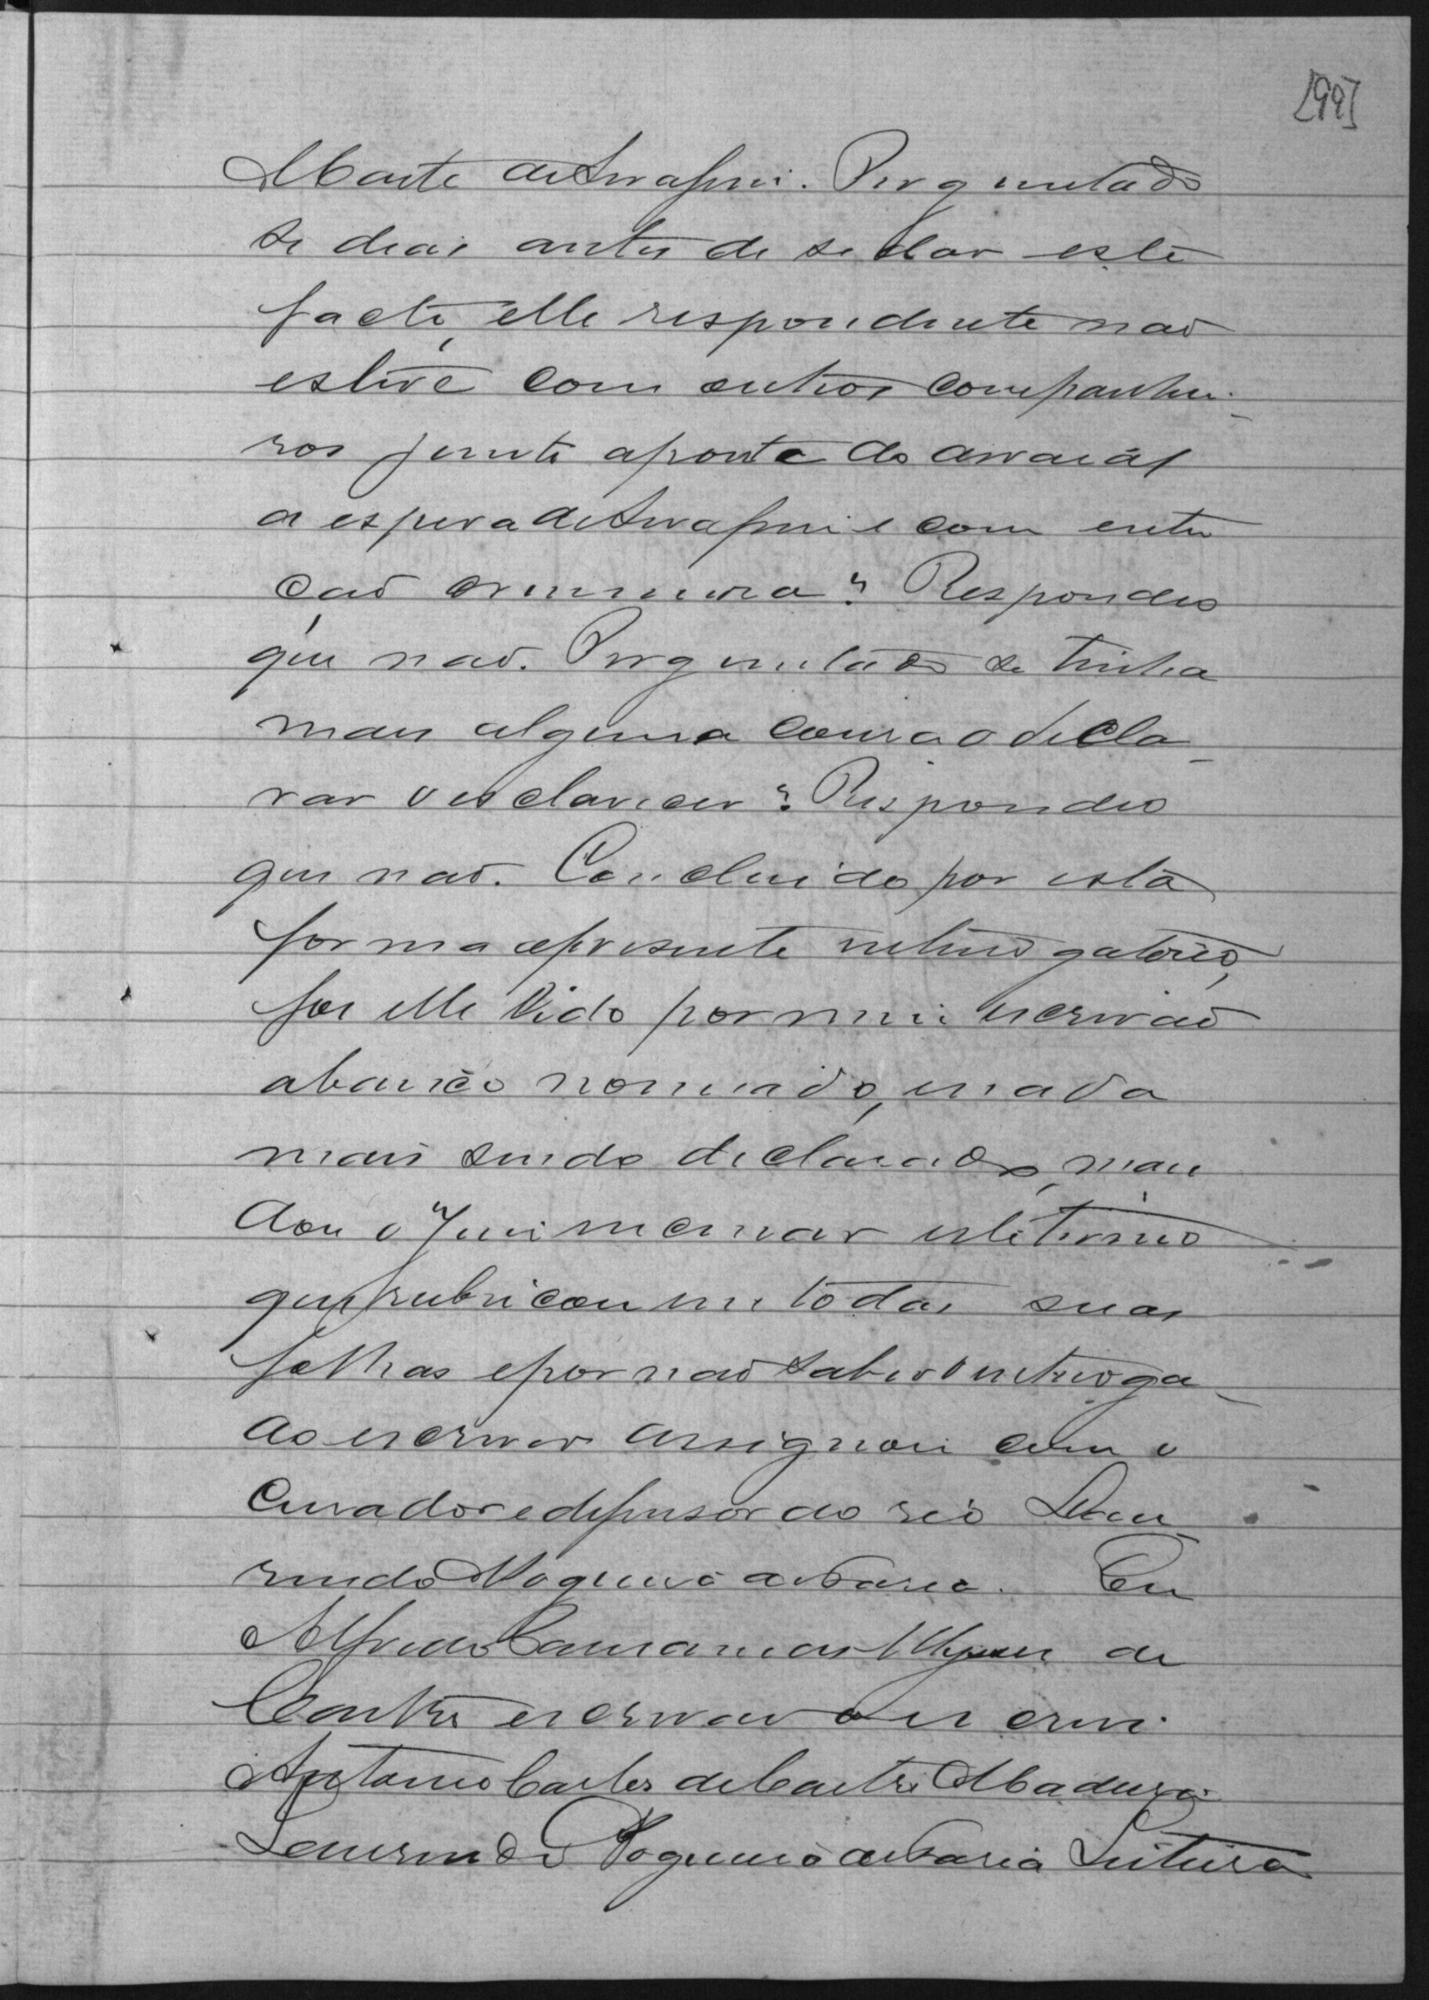 [99]
Morte de Serafim. Perguntado
se dias antes de se dar este
facto, elle respondente não
esteve com outros companhei-
ros junto a ponte do arraial
a espera de Serafim e com enten
ção criminosa? Respondeo
que não. Perguntado se tinha
mais alguma cousa a decla-
rar ou esclarecer? Respondeo
que não. Concluido por esta
forma o presente interrogatorio,
foi elle lido por mim escrivão
abaixo nomeado, e nada
mais sendo declarado, man
dou o Juiz encerrar este termo
que rubricou em todas suas
folhas e por não saber o interroga-
do escrever assignou com o
Curador e defensor do réo Lau-
rindo Nogueira de Faria. Eu
Alfredo Camarnas Ulysses de
Castro escrivão o escrevi.
Antonio Carlos de Castro Madura
Laurindo Nogueira de Faria